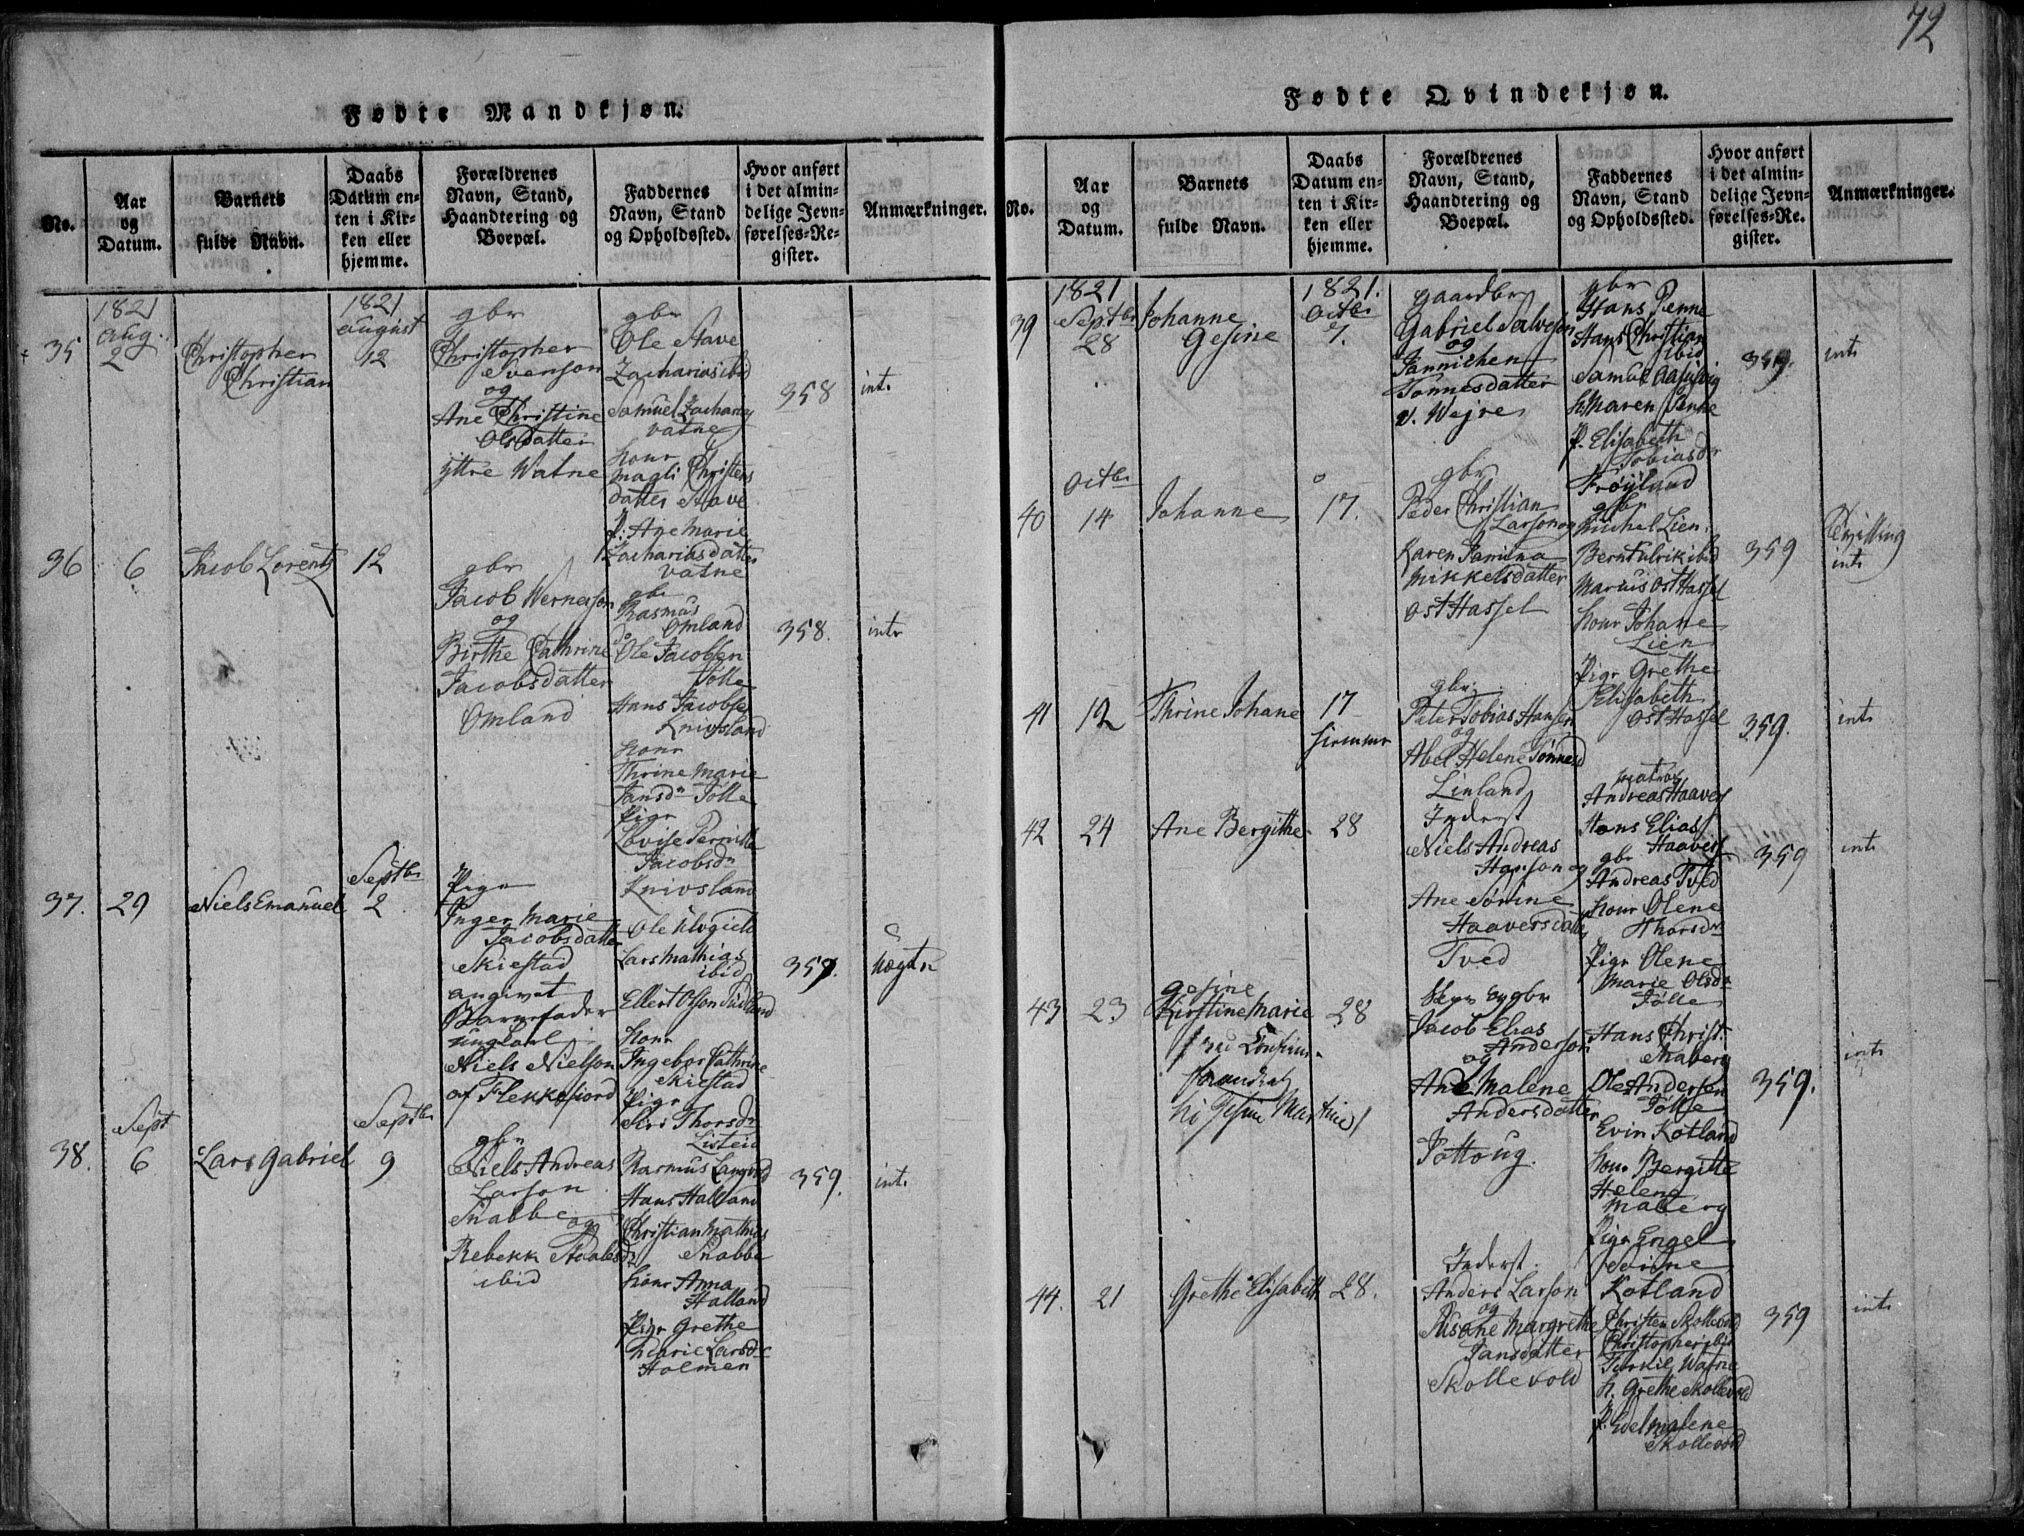 72
Fødte Mandkjøn.
No.
Aar
og
Datum.
Barnets
fulde Navn.
Daabs
Datum en-
ten i Kir-
ken eller
hjemme.
Forældrenes
Navn, Stand,
Haandtering og
Boepæl.
Faddernes
Navn, Stand
og Opholdssted.
Hvor anført
i det almin-
delige Jevn-
førelses-Re-
gister.
Anmærkninger.
35
1821
aug.
2
Christopher
Christian
1821
august
12
gbr
Christopher
Svenson
og
Ane Christine
Olsdatter
yttre Watne
gbr
Ole Stave
Zacharias ibid
Samuel Zachary
vatne
konr
Magli Christens
datter Stave
P. Ane Marie
Zachariasdatter
vatne
358
int.
36
6
Jacob Lorentz
12
gbr
Jacob Wernerson
og
Birthe Cathrine
Jacobsdatter
Omland
gbr
Rasmus
Omland
do Ole Jacobsen
Tölle
Hans Jacobsen
Knivsland
konr
Thrine Marie
Jansdr Tölle
Pigr
Lovise Pernille
Jacobsdr
Knivsland
358.
intr
37.
29
Niels Emanuel
Septbr
2
Pigr
Inger Marie
Jacobsdatter
Skiestad
angivet
Barnefader
ungkarl
Niels Nielson
af Flekkefiord
Ole
Lars Mathias
ibid
Ellert Olson
konr
Ingebor Cathrine
Skiestad
Pigr
Siri Thorsdr
Listeid
359.
Uægte
38.
Sept
6
Lars Gabriel
Septbr
9
gbr
Niels Andreas
Larson
Snabbe
og
Rebekk
ibid
Rasmus
Hans Halland
Christian Mathias
Snabbe
konr Anna
Halland
Pigr Grethe
Marie Larsdr
Holmen
359.
int.
Fødte Qvindekjøn.
No.
Aar
og
Datum.
Barnets
fulde Navn.
Daabs
Datum en-
ten i Kir-
ken eller
hjemme.
Forældrenes
Navn, Stand,
Haandtering og
Boepæl.
Faddernes
Navn, Stand
og Opholdssted.
Hvor anført
i det almin-
delige Jevn-
førelses-Re-
gister.
Anmærkninger.
39
1821
Septbr
28
Johanne
Gesine
1821.
Octbr
7.
gaardbr
Gabriel Salveson
og
Jannichen
Tönnesdatter
v. Wejre
gbr
Hans Penne
Hans Christian
ibid
Samuel
k. Maren Penne
P. Elisabeth
Tobiasdr
Fröÿland
359.
int.
40
Octbr
14
Johanne
17.
gbr
Peder Christian
Larson og
Karen Jamina
Mikkelsdatter
Ost Hassel
gbr
Michel Lien.
Bernt Ulrik ibid
Marcus Ost Hassel
konr Johane
Lien
Pigr Grethe
Elisabeth
Ost Hassel
359
Tvilling
int
41
12
Thrine Johane
17
hiemme
gbr.
Peter Tobias Hansen
og
Abel Helene Tönnesd
Linland
359.
int.
42
24
Ane Bergithe
28
Inderst
Niels Andreas
Hanson og
Ane Sorine
Haaversdatter
Tved
Andreas Haavers
Hans Elias
Haavers
gbr
Andreas Tved
konr Olene
Thorsdr
Pigr Olene
Marie Olsdr
Tölle
359
int.
43
23
gesine
Kirstine Marie
ved Confirm.
28
og gbr
Jacob Elias
Anderson
og
Ane Malene
Andersdatter
Tottoug.
Hans Christ.
Maberg
Ole Anderson
Tölle
Evin Kotland
konr Bergitte
Helene
Maberg
Pigr Engel
Serine
Kotland
359.
int.
44.
21
Grethe Elisabeth
28.
Inderst.
Anders Larson
og
Susane Margrethe
Jansdatter
Skollevold
Christen Skollevold
Christopher ibid
Watne
k. Grethe Skollevold
P. Edel Malene
Skollevold
359
int.